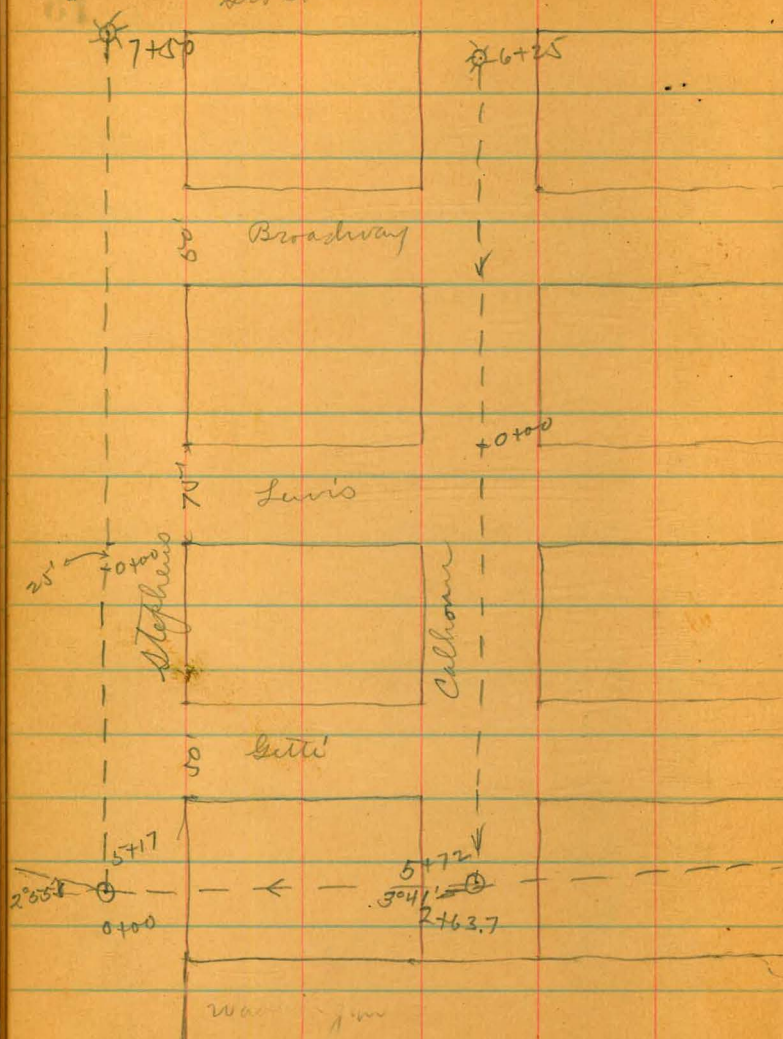 7+50
6+25
50'
Broadway
0+00
75'
Lewis
25'
0+00
Stephens
Calhoun
50'
Gette
5+17
5+72
2°55'
3°41'
0+00
2+63.7